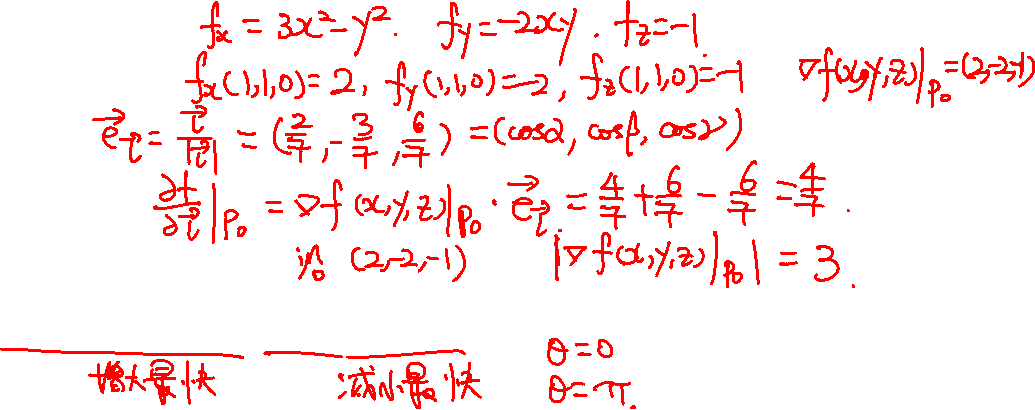 fx = 3x²-y². fy=-2xy. fz=-1.
fx(1,1,0)=2, fy(1,1,0)=-2, fz(1,1,0)=-1 ∇f(x,y,z)|P₀=(2,-2,-1)
e⃗_l⃗ = l⃗/|l⃗| = (2/7, -3/7, 6/7) = (cosα, cosβ, cosγ)
∂f/∂l⃗|P₀ = ∇f(x,y,z)|P₀ · e⃗_l⃗ = 4/7+6/7-6/7=4/7.
沿 (2,-2,-1) |∇f(x,y,z)|P₀| = 3.
θ=0
增大最快 减小最快 θ=π.